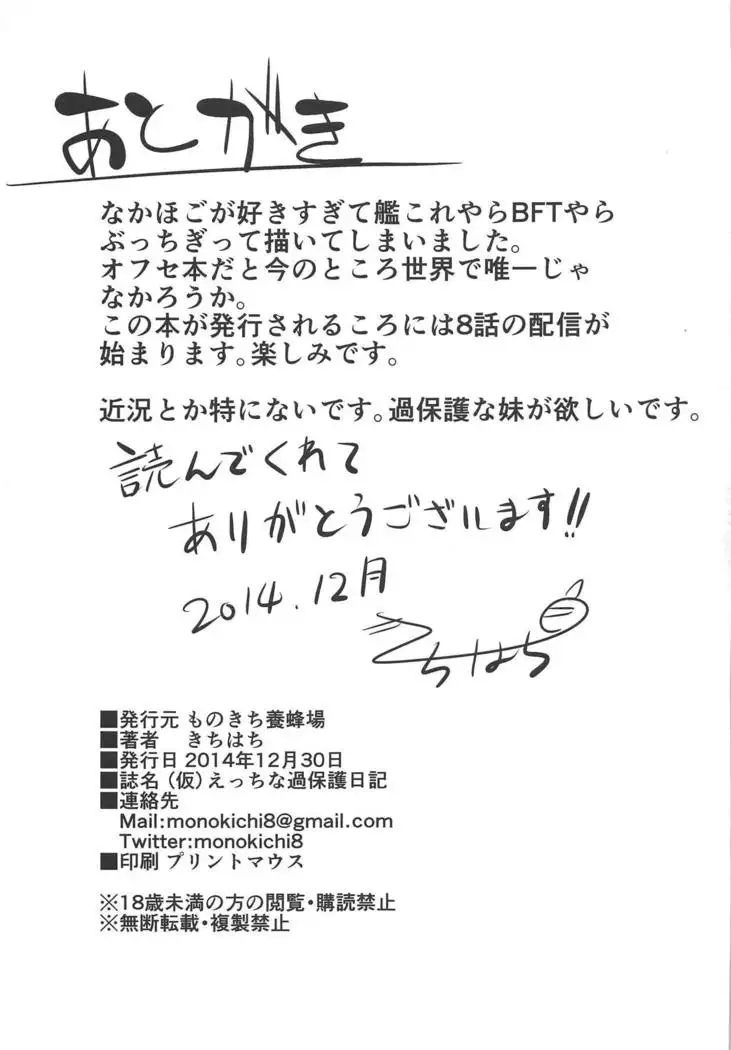 あとがき
なかほごが好きすぎて艦これやらBFTやら
ぶっちぎって描いてしまいました。
オフセ本だと今のところ世界で唯一じゃ
なかろうか。
この本が発行されるころには8話の配信が
始まります。楽しみです。
近況とか特にないです。過保護な妹が欲しいです。
読んでくれて
ありがとうございます!!
2014.12月
きちはち
■発行元 ものきち養蜂場
■著者 きちはち
■発行日 2014年12月30日
■誌名 (仮)えっちな過保護日記
■連絡先
Mail:monokichi8@gmail.com
Twitter:monokichi8
■印刷 プリントマウス
※18歳未満の方の閲覧・購読禁止
※無断転載・複製禁止